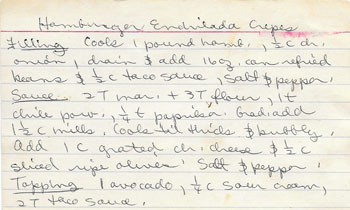 Hamburger Enchilada Crepes
Filling Cook 1 pound hamb., ½ c ch.
onion, drain & add 16 oz. can refried
beans & ½ c taco sauce, salt & pepper.
Sauce 2 T mar. + 3 T flour, 1 t
chile pow., ¼ t paprika. Grad. add
1½ c milk, Cook til thick & bubbly.
Add 1 c grated ch. cheese & ½ c
sliced ripe olives. Salt & pepper.
Topping 1 avocado, ¼ c sour cream,
2 T taco sauce.